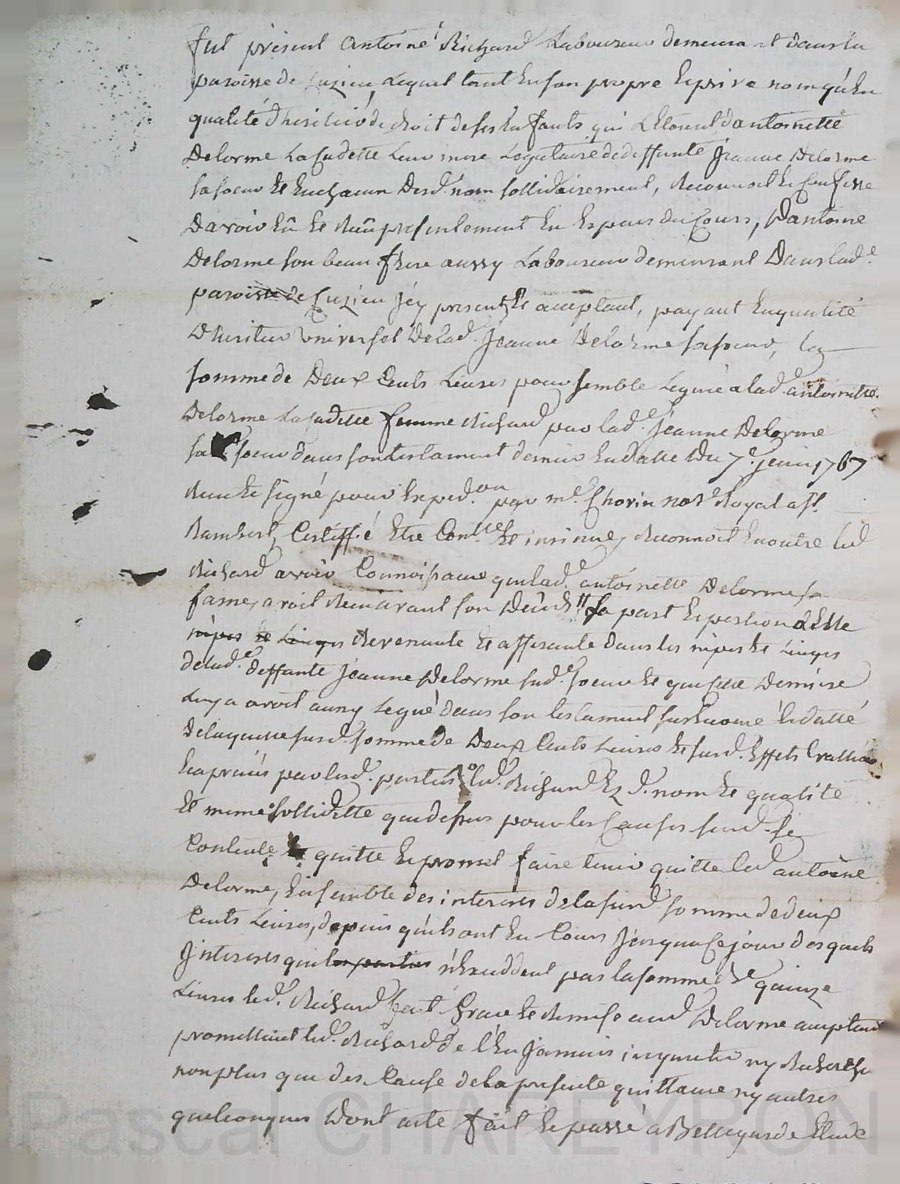 fut présent antoine Richard Laboureur demeurant dans la
paroisse de Cuzieu, Lequel tant en son propre & privé nom qu'en
qualité d'heritier de droit de ses Enfants qui L'Etoient d'antoinette
Delorme La Cadette Leur mere Legataire de deffunte Jeanne Delorme
sa soeur & En chacun desd. nom sollidairement, Reconnoit & Confesse
D'avoir Eû & Reçû presentement En Especes du Cours, D'antoine
Delorme son beau frere aussy Laboureur demeurant Dans lad.e
paroisse de Cuzieu icy present & acceptant, payant En qualité
D'heritier universel de lad. Jeanne Delorme sa soeur, la
somme de Deux Cents Livres pour semble Leguée a lad. antoinette
Delorme La Cadette femme Richard par lad.e Jeanne Delorme
sa soeur dans son testament dernier En datte Du 7.e juin 1767
Reçu & signé pour Exped.on par m.e Chorin not.e Royal a st.
Rambert, Certiffié Etre Con.lé & insinué, Reconnoit En outre led
Richard avoir Connoissance que lad.e antoinette Delorme sa
fame, avoit Reçu avant son Déçès la part & portion a Elle
nipes & Linges Revenante & afferante dans les nipes & Linges
de lad.e deffunte Jeanne Delorme sud.e soeur & que cette Derniere
Luy avoit aussy Legué dans son testament sus Enoncé & datté
De laquelle susd. somme de Deux Cents Livres & susd. Effets
par lesd. parties led. Richard Ez d. nom & qualité
Et meme sollidité que dessus pour les Causes susd. se
Contente quitte & promet faire tenir quitte led antoine
Delorme, Ensemble des interets de la susd somme de deux
Cents Livres, depuis qu'ils ont Eu Cours jusqu'a Ce jour desquels
Interets qui n'Exceddent pas la somme de quinze
Livres led. Richard fait Grace & Remise aud Delorme acceptant
promettant led. Richard de l'En jamais inquieter ny Rechercher
non plus que des Cause de la presente quittance ny autres
quelconques Dont acte fait & passé a Bellegarde Etude
Pascal CHAREYRON